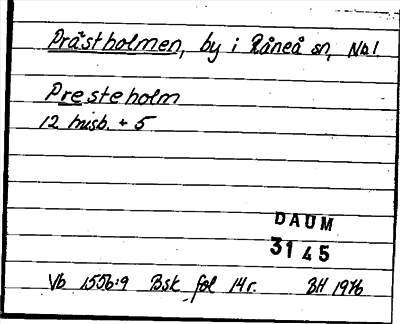 Prästholmen, by i Råneå sn, Nb 1
Presteholm
12 misb. + 5
DAUM
3145
Vb 1556:9 Bsk fol 14r. BH 1976